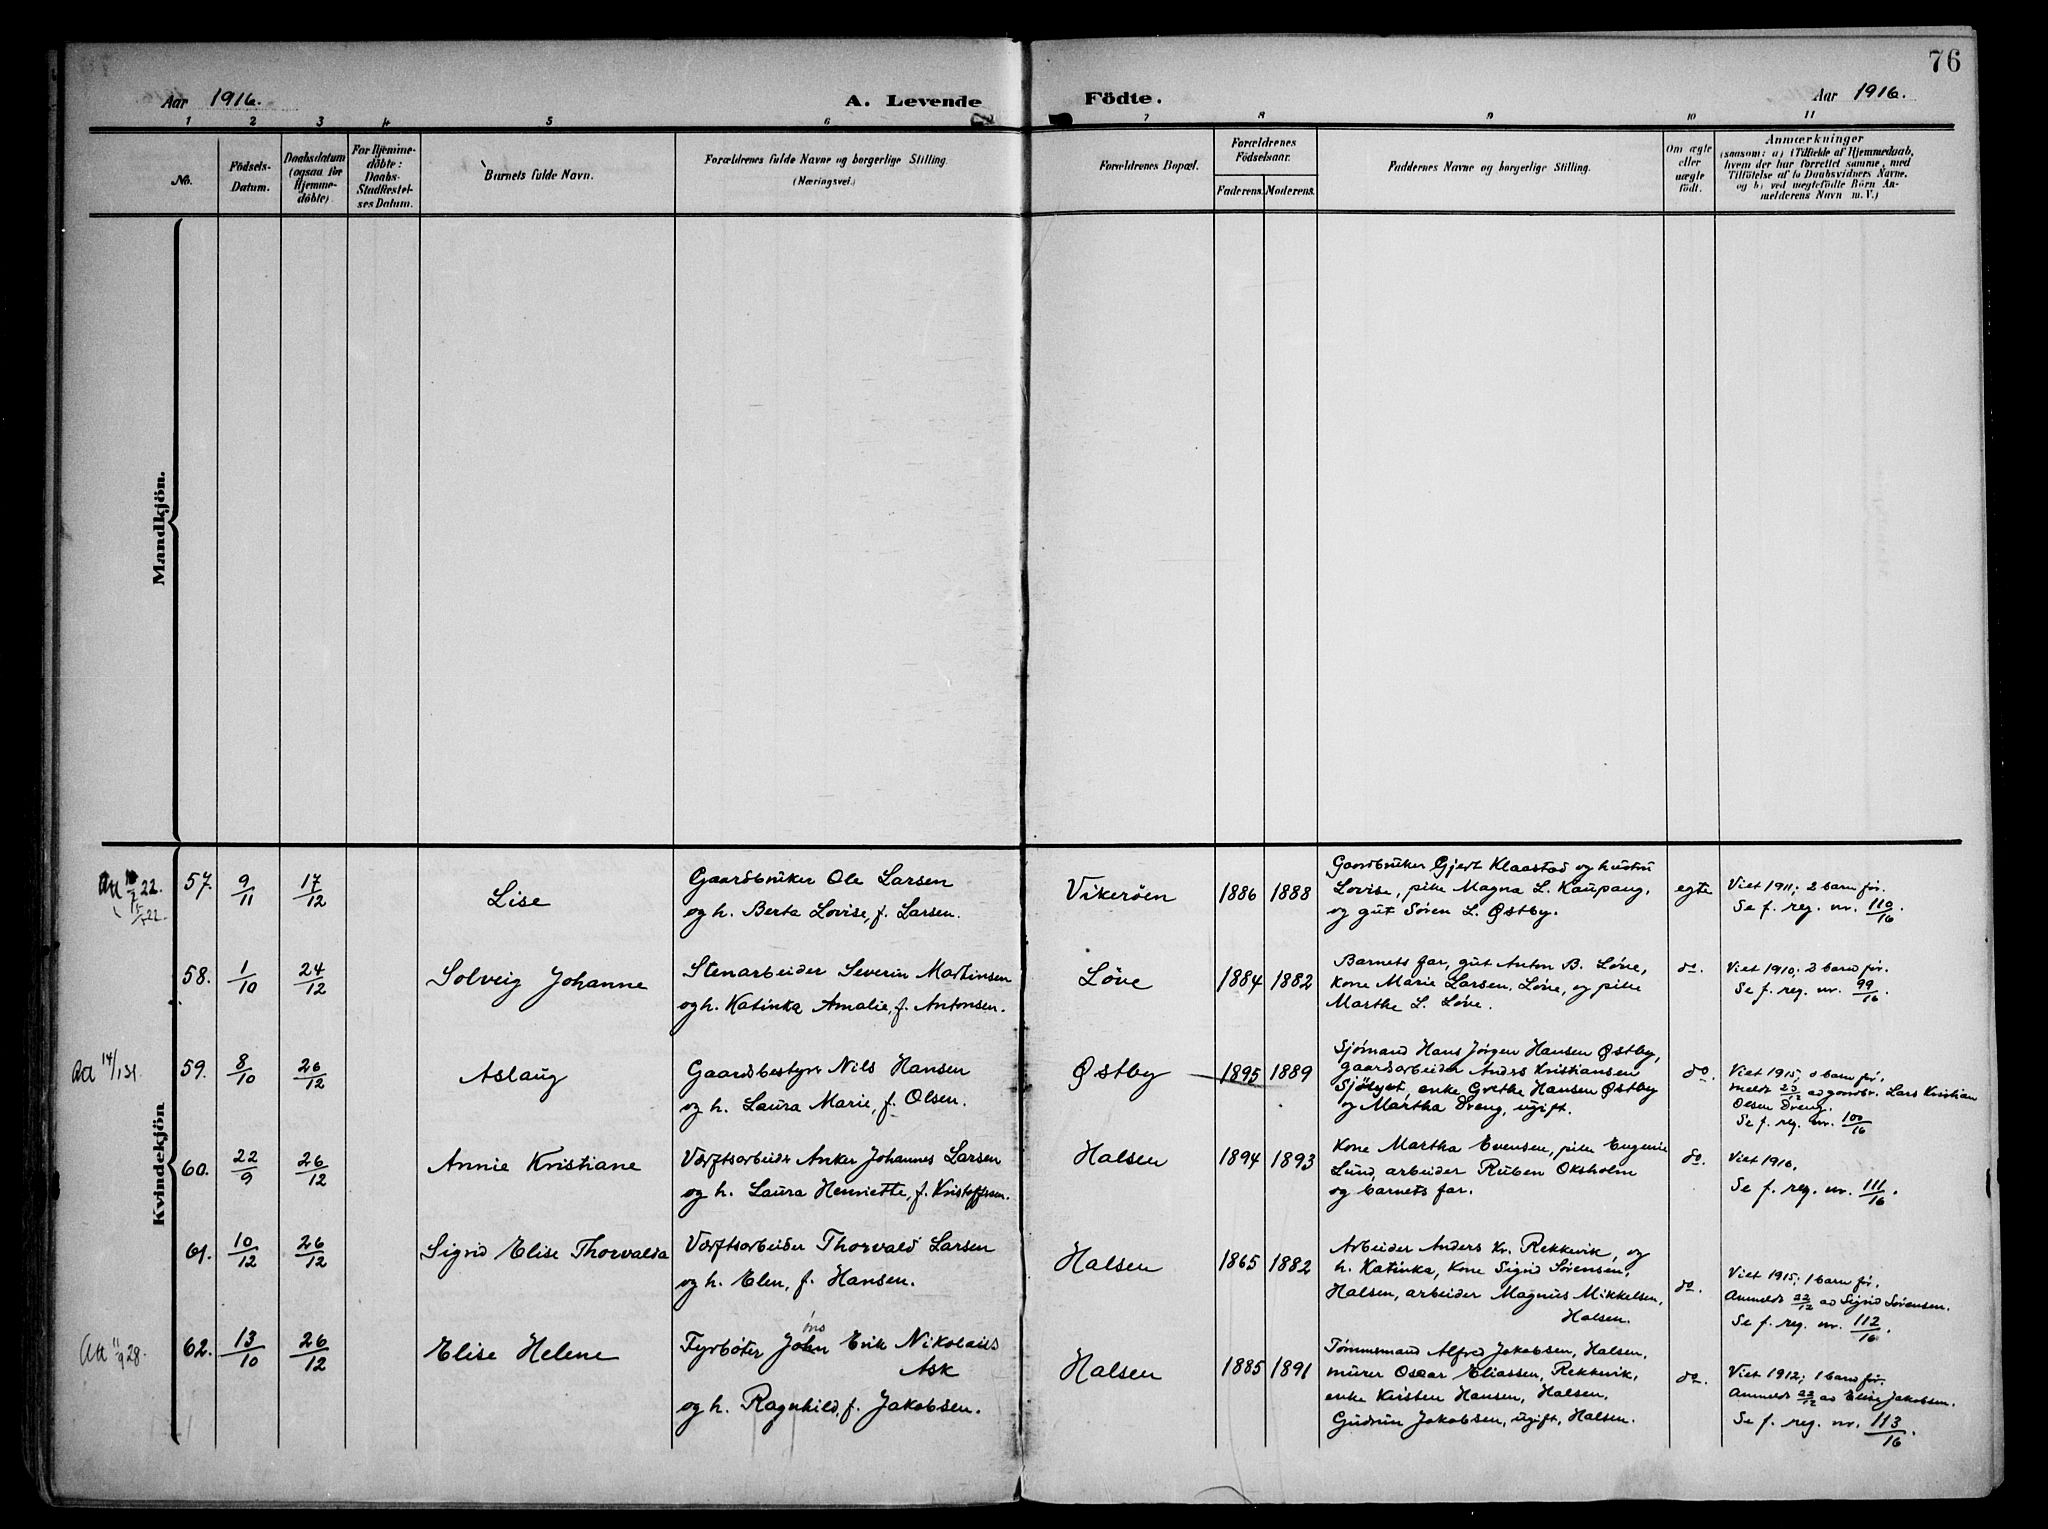 76
Aar 1916.
A. Levende Födte.
Aar 1916.
1 2 3 4 5 6 7 8 9 10 11
No.
Födsels-
Datum.
Daabsdatum
(ogsaa for
Hjemme-
döbte).
For Hjemme-
döbte:
Daabs-
Stadfestel-
ses Datum.
Barnets fulde Navn.
Forældrenes fulde Navne og borgerlige Stilling.
(Næringsvei.)
Forældrenes Bopæl.
Forældrenes
Födselsaar.
Faderens. Moderens.
Faddernes Navne og borgerlige Stilling.
Om ægte
eller
uægte
födt.
Anmærkninger
(saasom: a) i Tilfælde af Hjemmedaab,
hvem der har forrettet samme, med
Tilföielse af to Daabsvidners Navne,
og b) ved uegtefödte Börn An-
melderens Navn m. V.)
Mandkjön.
Kvindekjön
57. 9/11 17/12
Lise
Gaardbruker Ole Larsen
og h. Berta Lovise, f. Larsen.
Vikerøen
1886 1888
Gaardbruker Gjert Klaastad og hustru
Lovise, pike Magna L. Kaupang,
og gut Søren L. Østby.
egte
Viet 1911; 2 barn før.
Se f. reg. nr. 110/16.
58. 1/10 24/12
Solveig Johanne
Stenarbeider Severin Martinsen
og h. Katinka Amalie, f. Antonsen.
Løve
1884 1882
Barnets far, gut Anton B. Løve,
kone Marie Larsen, Løve, og pike
Marthe L. Løve.
do.
Viet 1910; 2 barn før.
Se f. reg. nr. 99/16.
Att 14/1 31.
59. 8/10 26/12
Aslaug
Gaardsbestyrer Nils Hansen
og h. Laura Marie, f. Olsen.
Østby
1895 1889
Sjømand Hans Jørgen Hansen Østby,
gaardarbeider Anders Kristiansen
Sjølyst, enke Grethe Hansen Østby
og Martha Dreng, ugift.
do.
Viet 1915; 0 barn før.
meldt 23/12 av gaardbr. Lars Kristian
Olsen Dreng.
Se f. reg. nr. 100/16
60. 22/9 26/12
Annie Kristiane
Verftsarbeider Anker Johannes Larsen
og h. Laura Henriette, f. Kristoffersen.
Halsen
1894 1893
Kone Martha Evensen, pike Eugenie
Lund, arbeider Ruben Oksholm
og barnets far.
do.
Viet 1916.
Se f. reg. nr. 111/16.
61. 10/12 26/12
Sigrid Elise Thorvalda
Verftsarbeider Thorvald Larsen
og h. Elen, f. Hansen.
Halsen
1865 1882
Arbeider Anders Kr. Rekkevik, og
h. Katinka, kone Sigrid Sørensen,
Halsen, arbeider Magnus Mikkelsen,
Halsen.
do.
Viet 1915; 1 barn før.
Anmeldt 22/12 av Sigrid Sørensen.
Se f. reg. nr. 112/16.
Att 11/9 28.
62. 13/10 26/12
Elise Helene
Fyrbøter John Erik Nikolaus
Ask
og h. Ragnhild, f. Jakobsen.
Halsen
1885 1891
Tømmermand Alfred Jakobsen, Halsen,
murer Oscar Eliassen, Rekkevik,
enke Kirsten Hansen, Halsen,
Gudrun Jakobsen, ugift, Halsen.
do.
Viet 1912; 1 barn før.
Anmeldt 22/12 av Elise Jakobsen.
Se f. reg. nr. 113/16.